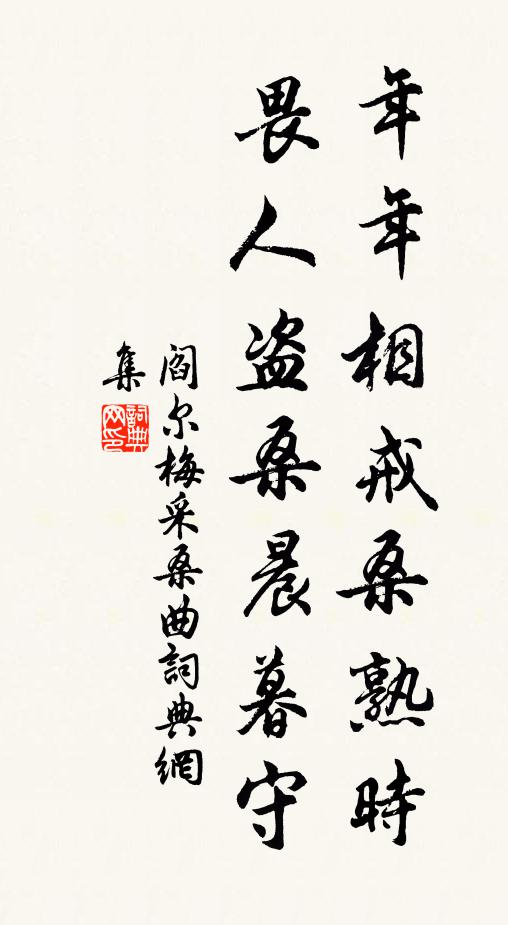 年年相戒桑熟時
畏人盜桑晨暮守
閻尔梅采桑曲詞典網
集
詞典网印